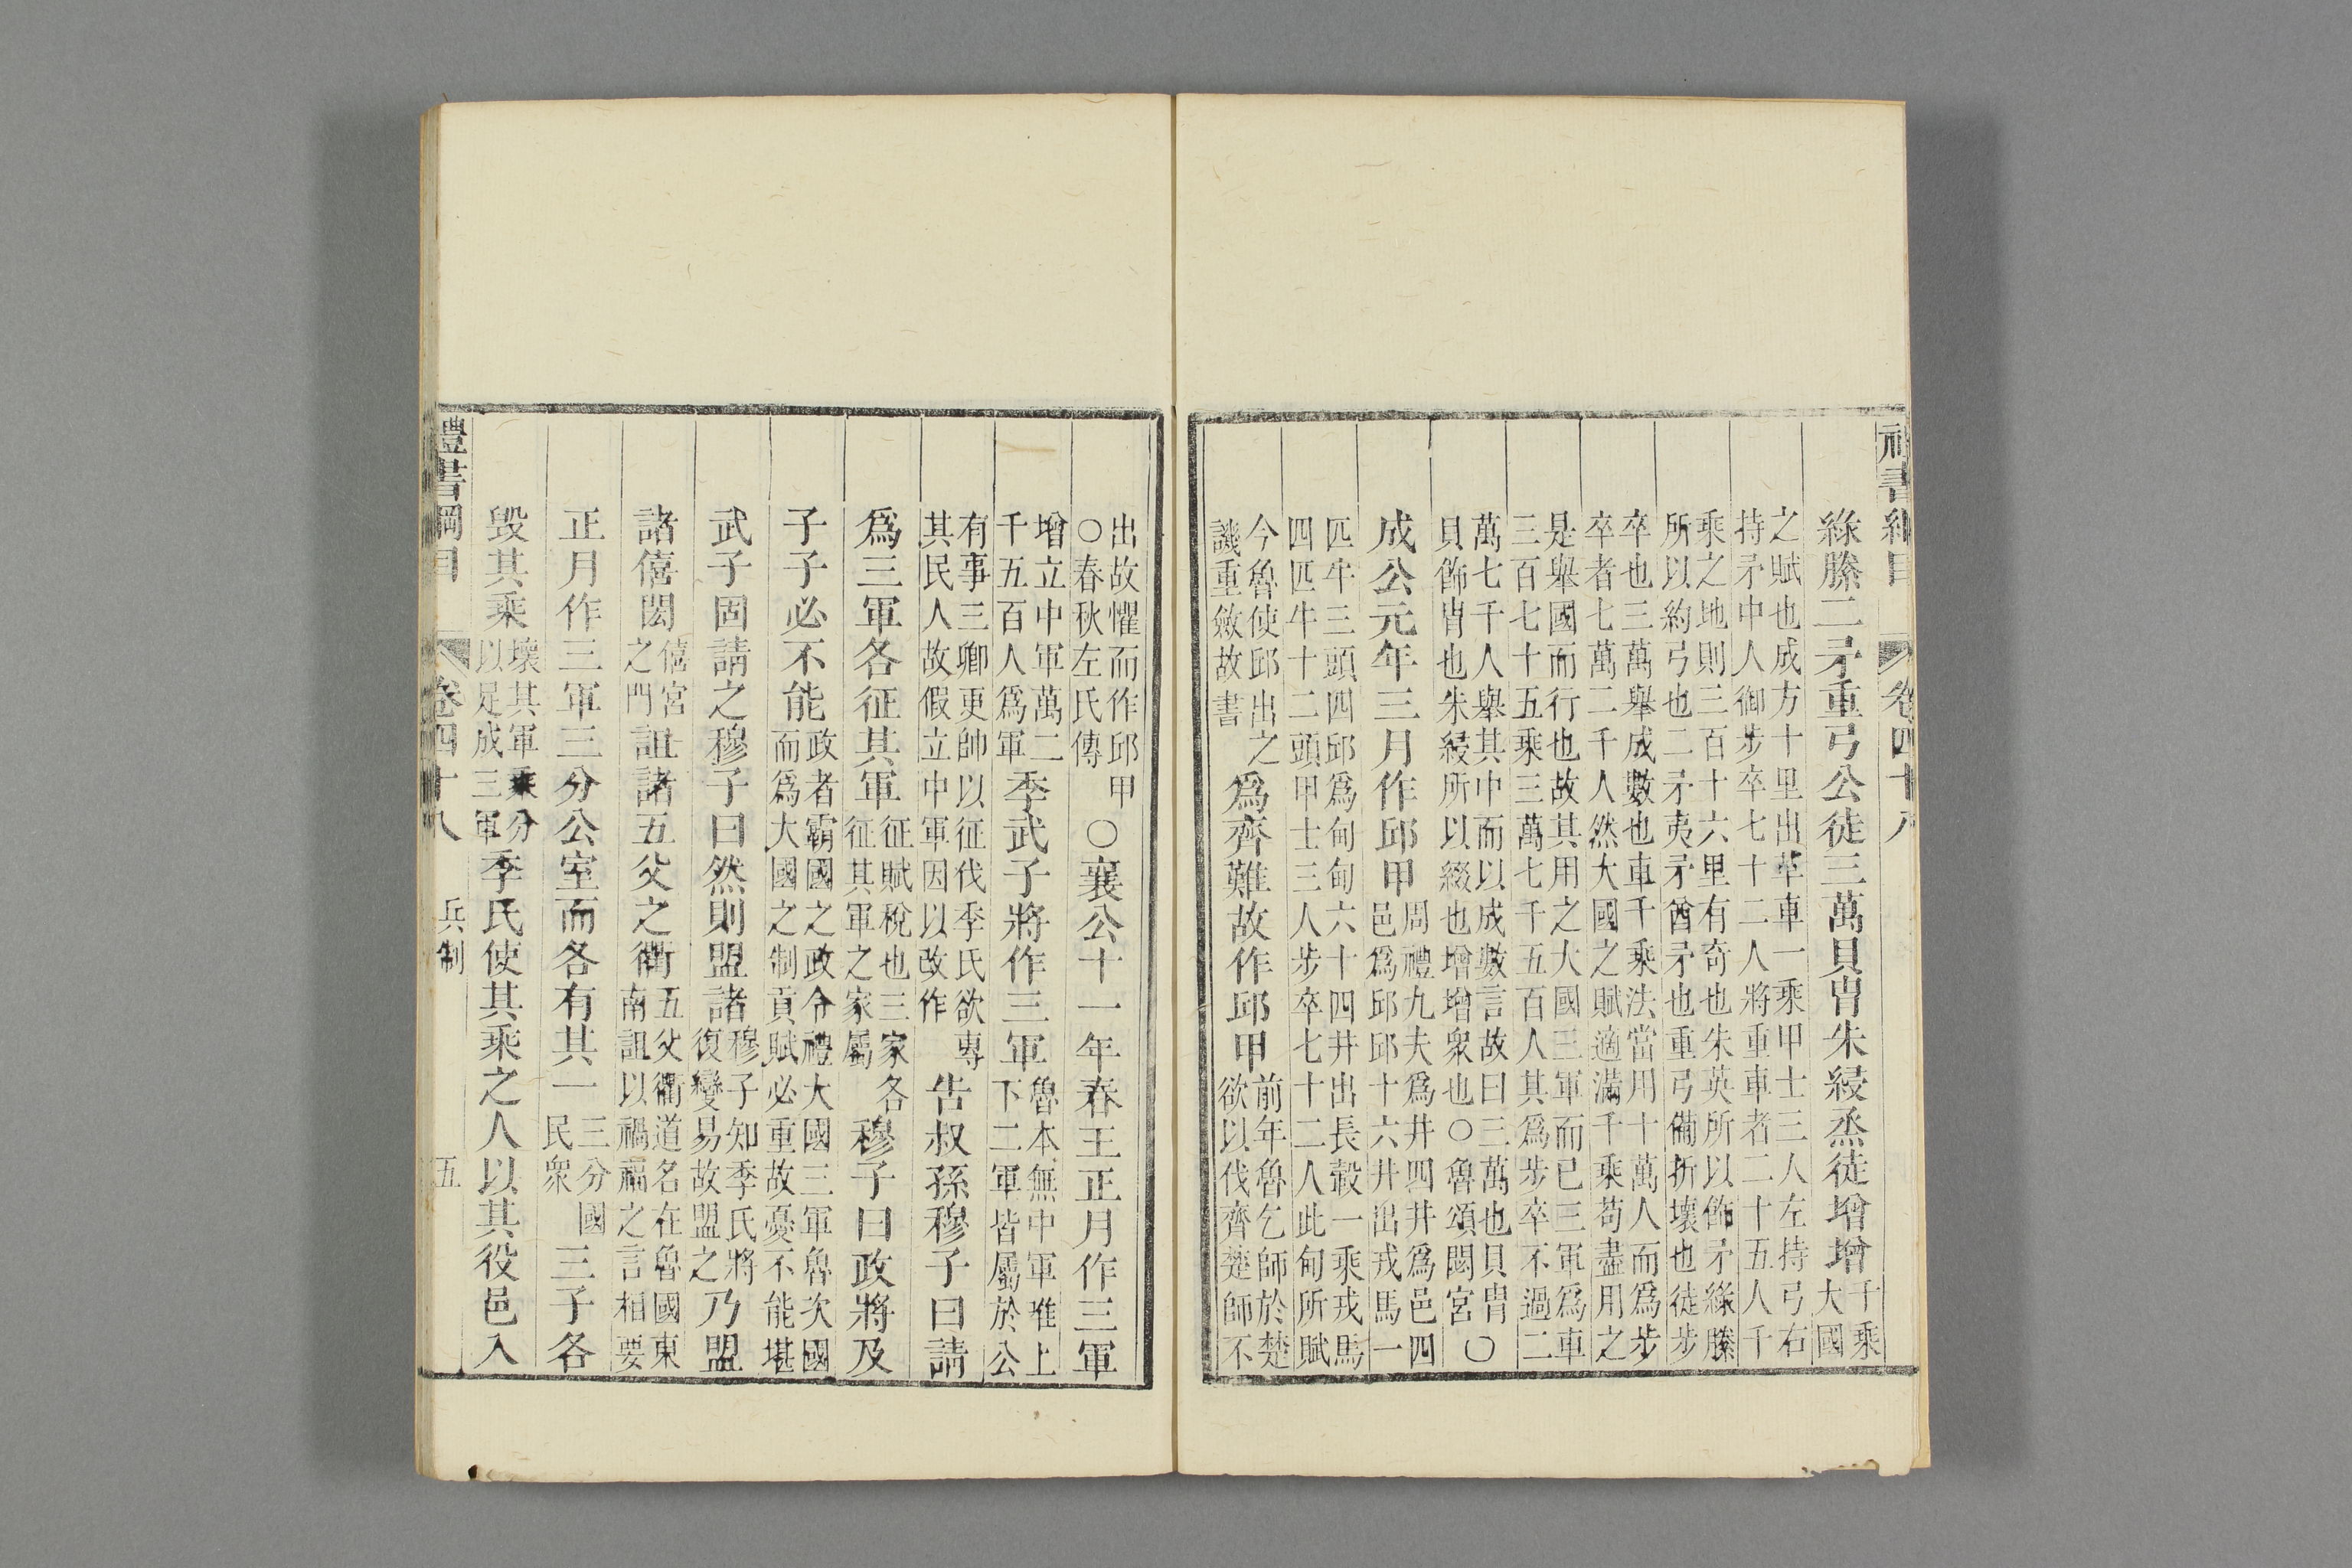 禮書綱目 卷四十八
綠縢二矛重弓公徒三萬貝胄朱綅烝徒增增千乘大國
之賦也成方十里出革車一乘甲士三人左持弓右
持矛中人御步卒七十二人將重車者二十五人千
乘之地則三百十六里有奇也朱英所以飾矛綠縢
所以約弓也二矛夷矛酋矛也重弓備折壞也徒步
卒也三萬舉成數也車千乘法當用十萬人而爲步
卒者七萬二千人然大國之賦適滿千乘苟盡用之
是舉國而行也故其用之大國三軍而已三軍爲車
三百七十五乘三萬七千五百人其爲步卒不過二
萬七千人舉其中而以成數言故曰三萬也貝胄
貝飾胄也朱綅所以綴也增增衆也○魯頌閟宮○
成公元年三月作邱甲周禮九夫爲井四井爲邑四
邑爲邱邱十六井出戎馬一
匹牛三頭四邱爲甸甸六十四井出長轂一乘戎馬
四匹牛十二頭甲士三人步卒七十二人此甸所賦
今魯使邱出之
譏重斂故書爲齊難故作邱甲前年魯乞師於楚
欲以伐齊楚師不
出故懼而作邱甲
○春秋左氏傳○襄公十一年春王正月作三軍
增立中軍萬二
千五百人爲軍季武子將作三軍魯本無中軍惟上
下二軍皆屬於公
有事三卿更帥以征伐季氏欲專
其民人故假立中軍因以改作告叔孫穆子曰請
爲三軍各征其軍征賦稅也三家各
征其軍之家屬穆子曰政將及
子子必不能政者霸國之政令禮大國三軍魯次國
而爲大國之制貢賦必重故憂不能堪
武子固請之穆子曰然則盟諸穆子知季氏將
復變易故盟之乃盟
諸僖閎僖宮
之門詛諸五父之衢五父衢道名在魯國東
南詛以禍福之言相要
正月作三軍三分公室而各有其一三分國
民衆三子各
毀其乘壞其軍乘分
以足成三軍季氏使其乘之人以其役邑入
禮書綱目 卷四十八 兵制 五